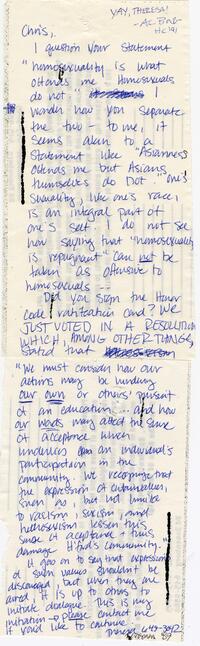 YAY, THERESA!
HC '91
Chris,
I question your statement
"homosexuality is what
offends me. Homosexuals
do not." I
wonder how you separate
the two - to me, it
seems akin to a
statement like "Asianness
offends me but Asians
themselves do not." One's
sexuality, like one's race,
is an integral part of
one's self. I do not see
how saying that "homosexuality
is repugnant" can not be
taken as offensive to
homosexuals --
Did you sign the Honor
Code ratification card? We
JUST VOTED IN A RESOLUTION
WHICH, AMONG OTHER THINGS,
stated that
"We must consider how our
actions may be hindering
our own or others' pursuit
of an education... and how
our words may affect the sense
of acceptance which
underlies an individual's
participation in the
community. We recognize that
the expression of
such as, but not limited
to racism, sexism, and
heterosexism lessen this
sense of acceptance & thus
damage H'ford's community."
It goes on to say that expression
of such values shouldn't be
discouraged, but when they are
aired it is up to others to
initiate dialogue. This is my
initiation - please contact me
if you'd like to continue.